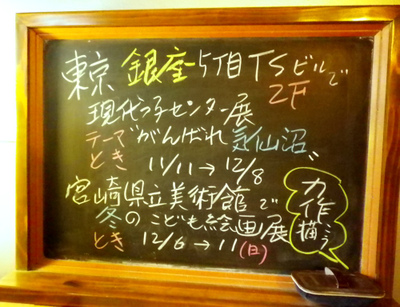 東京 銀座5丁目TSビルで
2F
現代っ子センター展
テーマ"がんばれ気仙沼"
とき 11/11→12/8
宮崎県立美術館で
冬のこども絵画展
とき 12/6→11(日)
力作
描こう